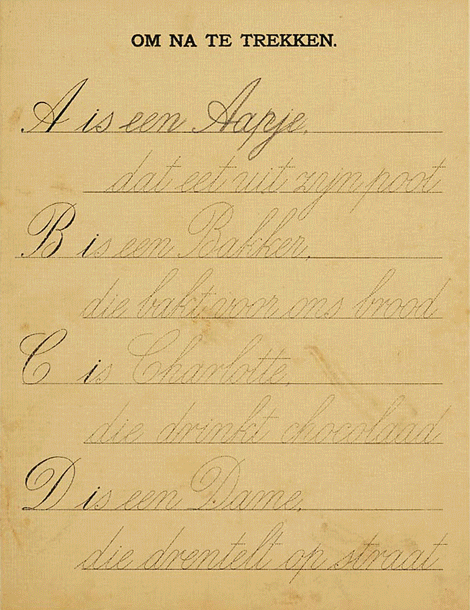 OM NA TE TREKKEN.
A is een Aapje,
dat eet uit zijn poot
B is een Bakker,
die bakt voor ons brood
C is Charlotte,
die drinkt chocolaad
D is een Dame,
die drentelt op straat